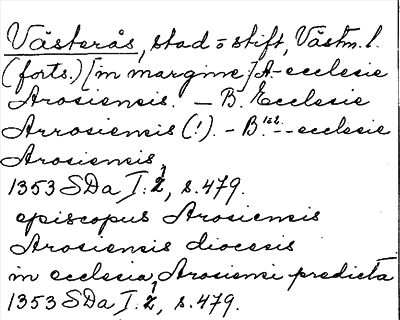 Västerås, stad o stift, Västm. l.
(forts.) [in margine] A-ecclesie
Arosiensis. – B. Ecclesie
Arrosiensis (!). – B. – ecclesie
Arosiensis,
1353 SDa I:2, s. 479.
episcopus Arosiensis
Arosiensis diocesis
in ecclesia, Arosiensi predicta
1353 SDa I:2, s. 479.